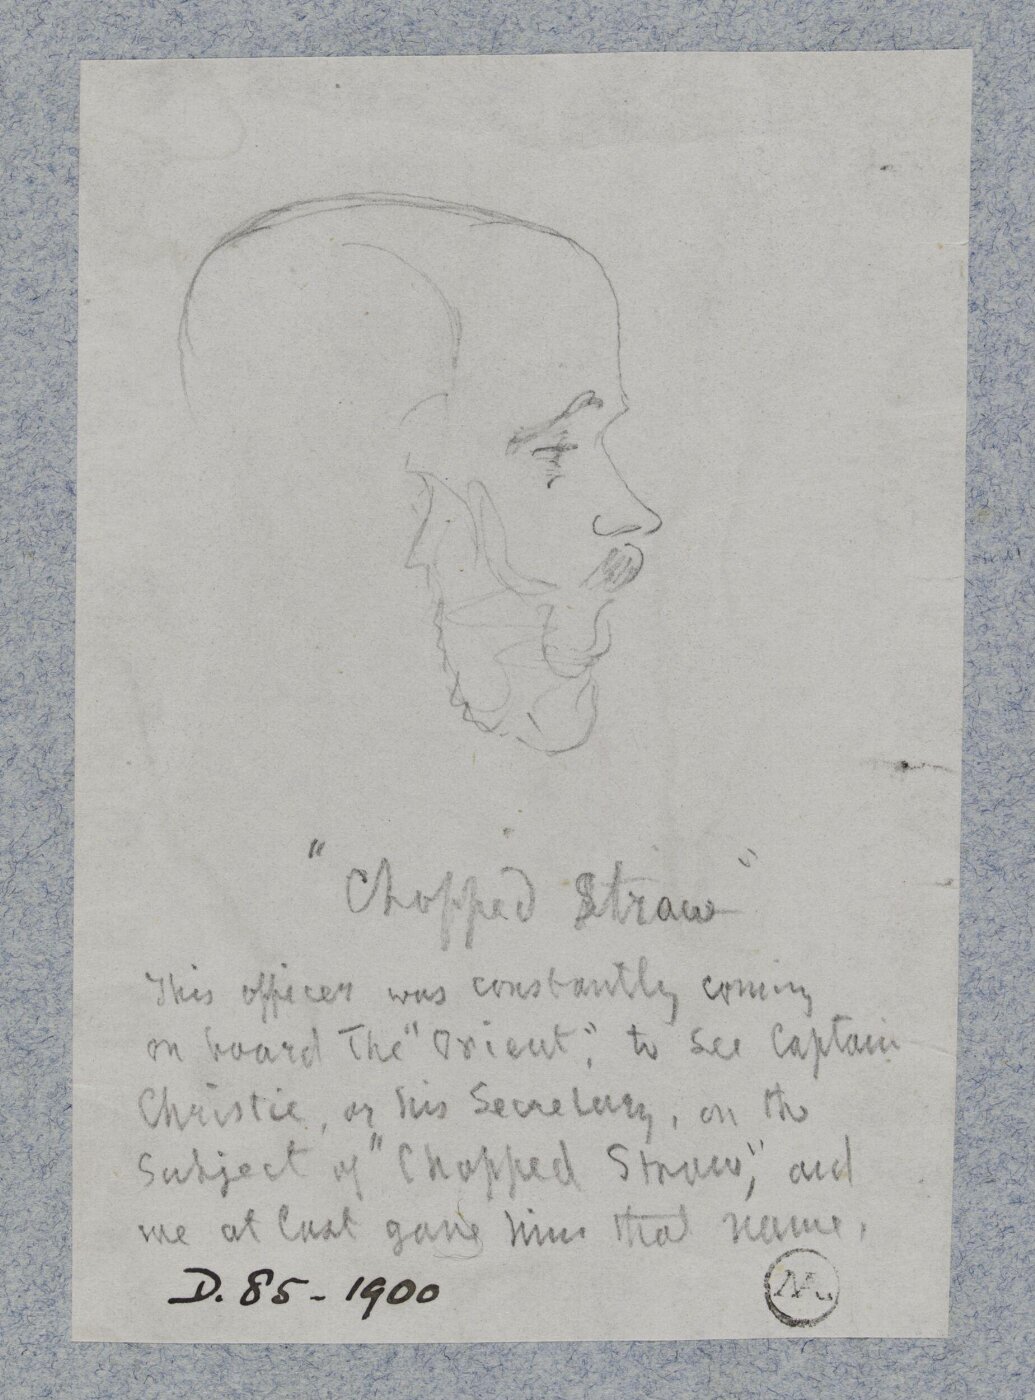 "Chopped Straw"
This officer was constantly coming
on board The "Orient", to see Captain
Christie, or his Secretary, on the
Subject of "Chopped Straw", and
we at last gave him that name.
D. 85 - 1900